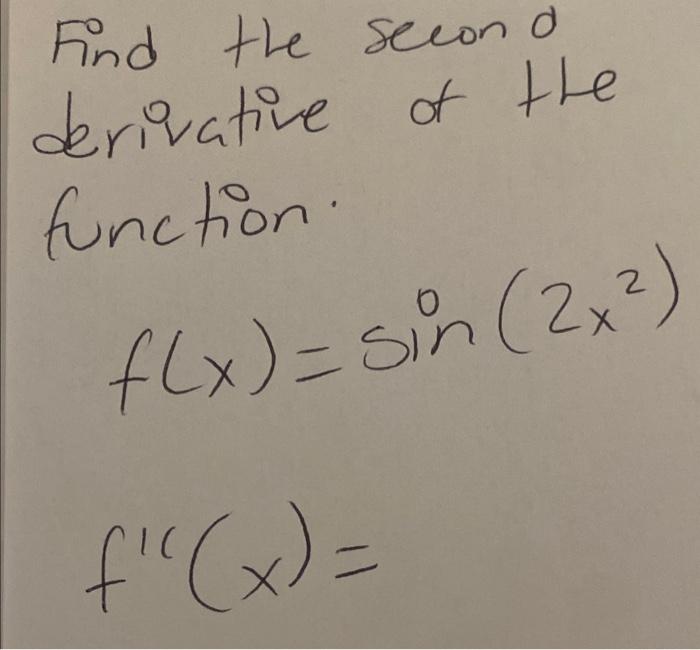 Find the second
derivative of the
function.
f(x) = sin(2x²)
f''(x) =